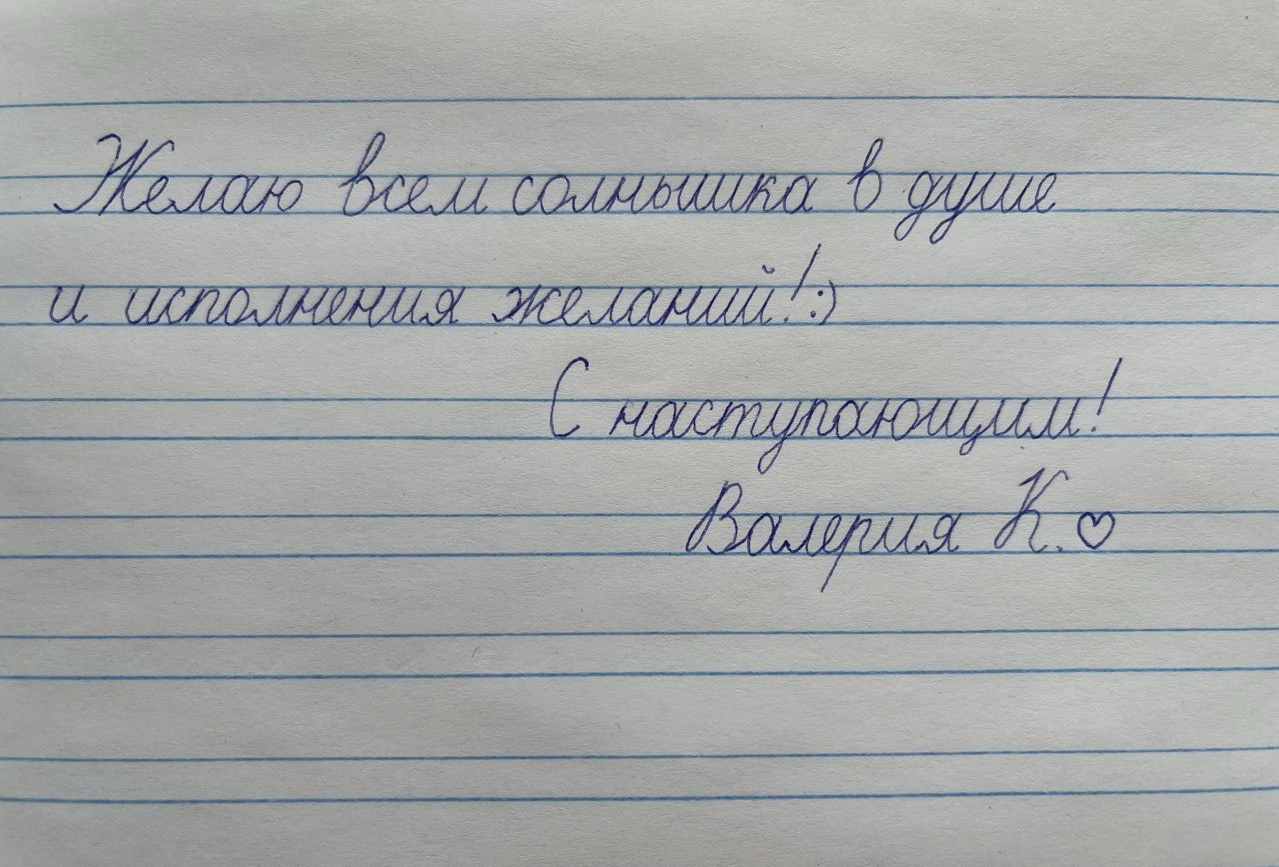 Желаю всем солнышка в душе
и исполнения желаний! :)
С наступающим!
Валерия К. ♡